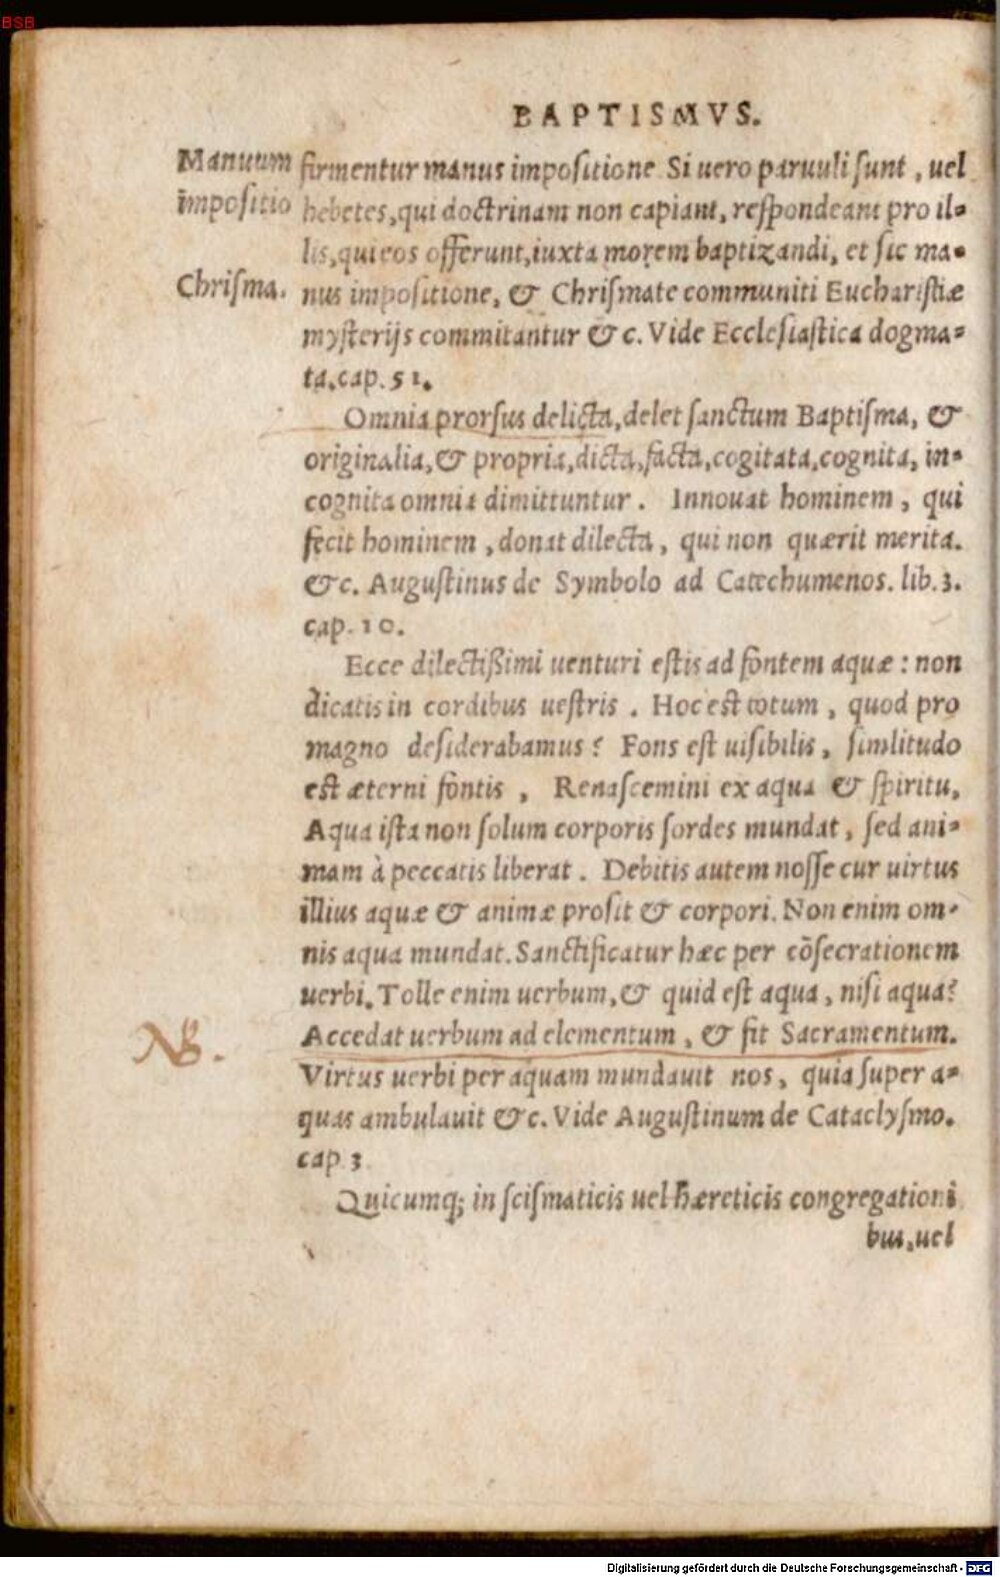 BSB
BAPTISMVS.
Manuum
impositio
Chrisma.
firmentur manus impositione Si uero paruuli sunt, uel
hebetes, qui doctrinam non capiant, respondeant pro il-
lis, qui eos offerunt, iuxta morem baptizandi, et sic ma-
nus impositione, & Chrismate communiti Eucharistiæ
mysterijs commitantur &c. Vide Ecclesiastica dogma-
ta. cap. 51.
Omnia prorsus delicta, delet sanctum Baptisma, &
originalia, & propria, dicta, facta, cogitata, cognita, in-
cognita omnia dimittuntur. Innouat hominem, qui
fecit hominem, donat dilecta, qui non quærit merita.
&c. Augustinus de Symbolo ad Catechumenos. lib. 3.
cap. 10.
Ecce dilectißimi uenturi estis ad fontem aquæ: non
dicatis in cordibus uestris. Hoc est totum, quod pro
magno desiderabamus? Fons est uisibilis, similitudo
est æterni fontis, Renascemini ex aqua & spiritu,
Aqua ista non solum corporis sordes mundat, sed ani-
mam à peccatis liberat. Debitis autem nosse cur uirtus
illius aquæ & animæ prosit & corpori. Non enim om-
nis aqua mundat. Sanctificatur hæc per cõsecrationem
uerbi. Tolle enim uerbum, & quid est aqua, nisi aqua?
NB.
Accedat uerbum ad elementum, & fit Sacramentum.
Virtus uerbi per aquam mundauit nos, quia super a-
quas ambulauit &c. Vide Augustinum de Cataclysmo.
cap 3
Quicumq; in scismaticis uel hæreticis congregationi
bus, uel
Digitalisierung gefördert durch die Deutsche Forschungsgemeinschaft - DFG